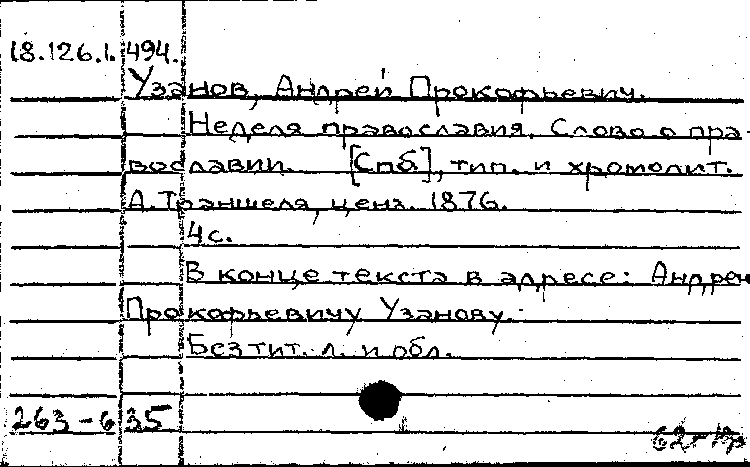 18.126.1.494.
Узанов, Андрей Прокофьевич.
Неделя православия. Слово о пра-
вославии. [Спб.], тип. и хромолит.
А. Траншеля, ценз. 1876.
4 с.
В конце текста в адресе: Андрею
Прокофьевичу Узанову.
Без тит. л. и обл.
263-635
62-